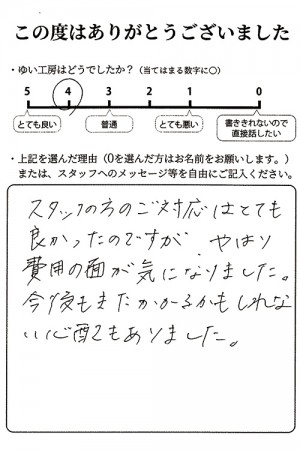 この度はありがとうございました
・ゆい工房はどうでしたか？（当てはまる数字に○）
5 4 3 2 1 0
とても良い 普通 とても悪い 書ききれないので直接話したい
・上記を選んだ理由（0を選んだ方はお名前をお願いします。）
または、スタッフへのメッセージ等を自由にご記入ください。
スタッフの方のご対応はとても
良かったのですが やはり
費用の面が気になりました。
今後もまたかかるかもしれな
い心配もありました。